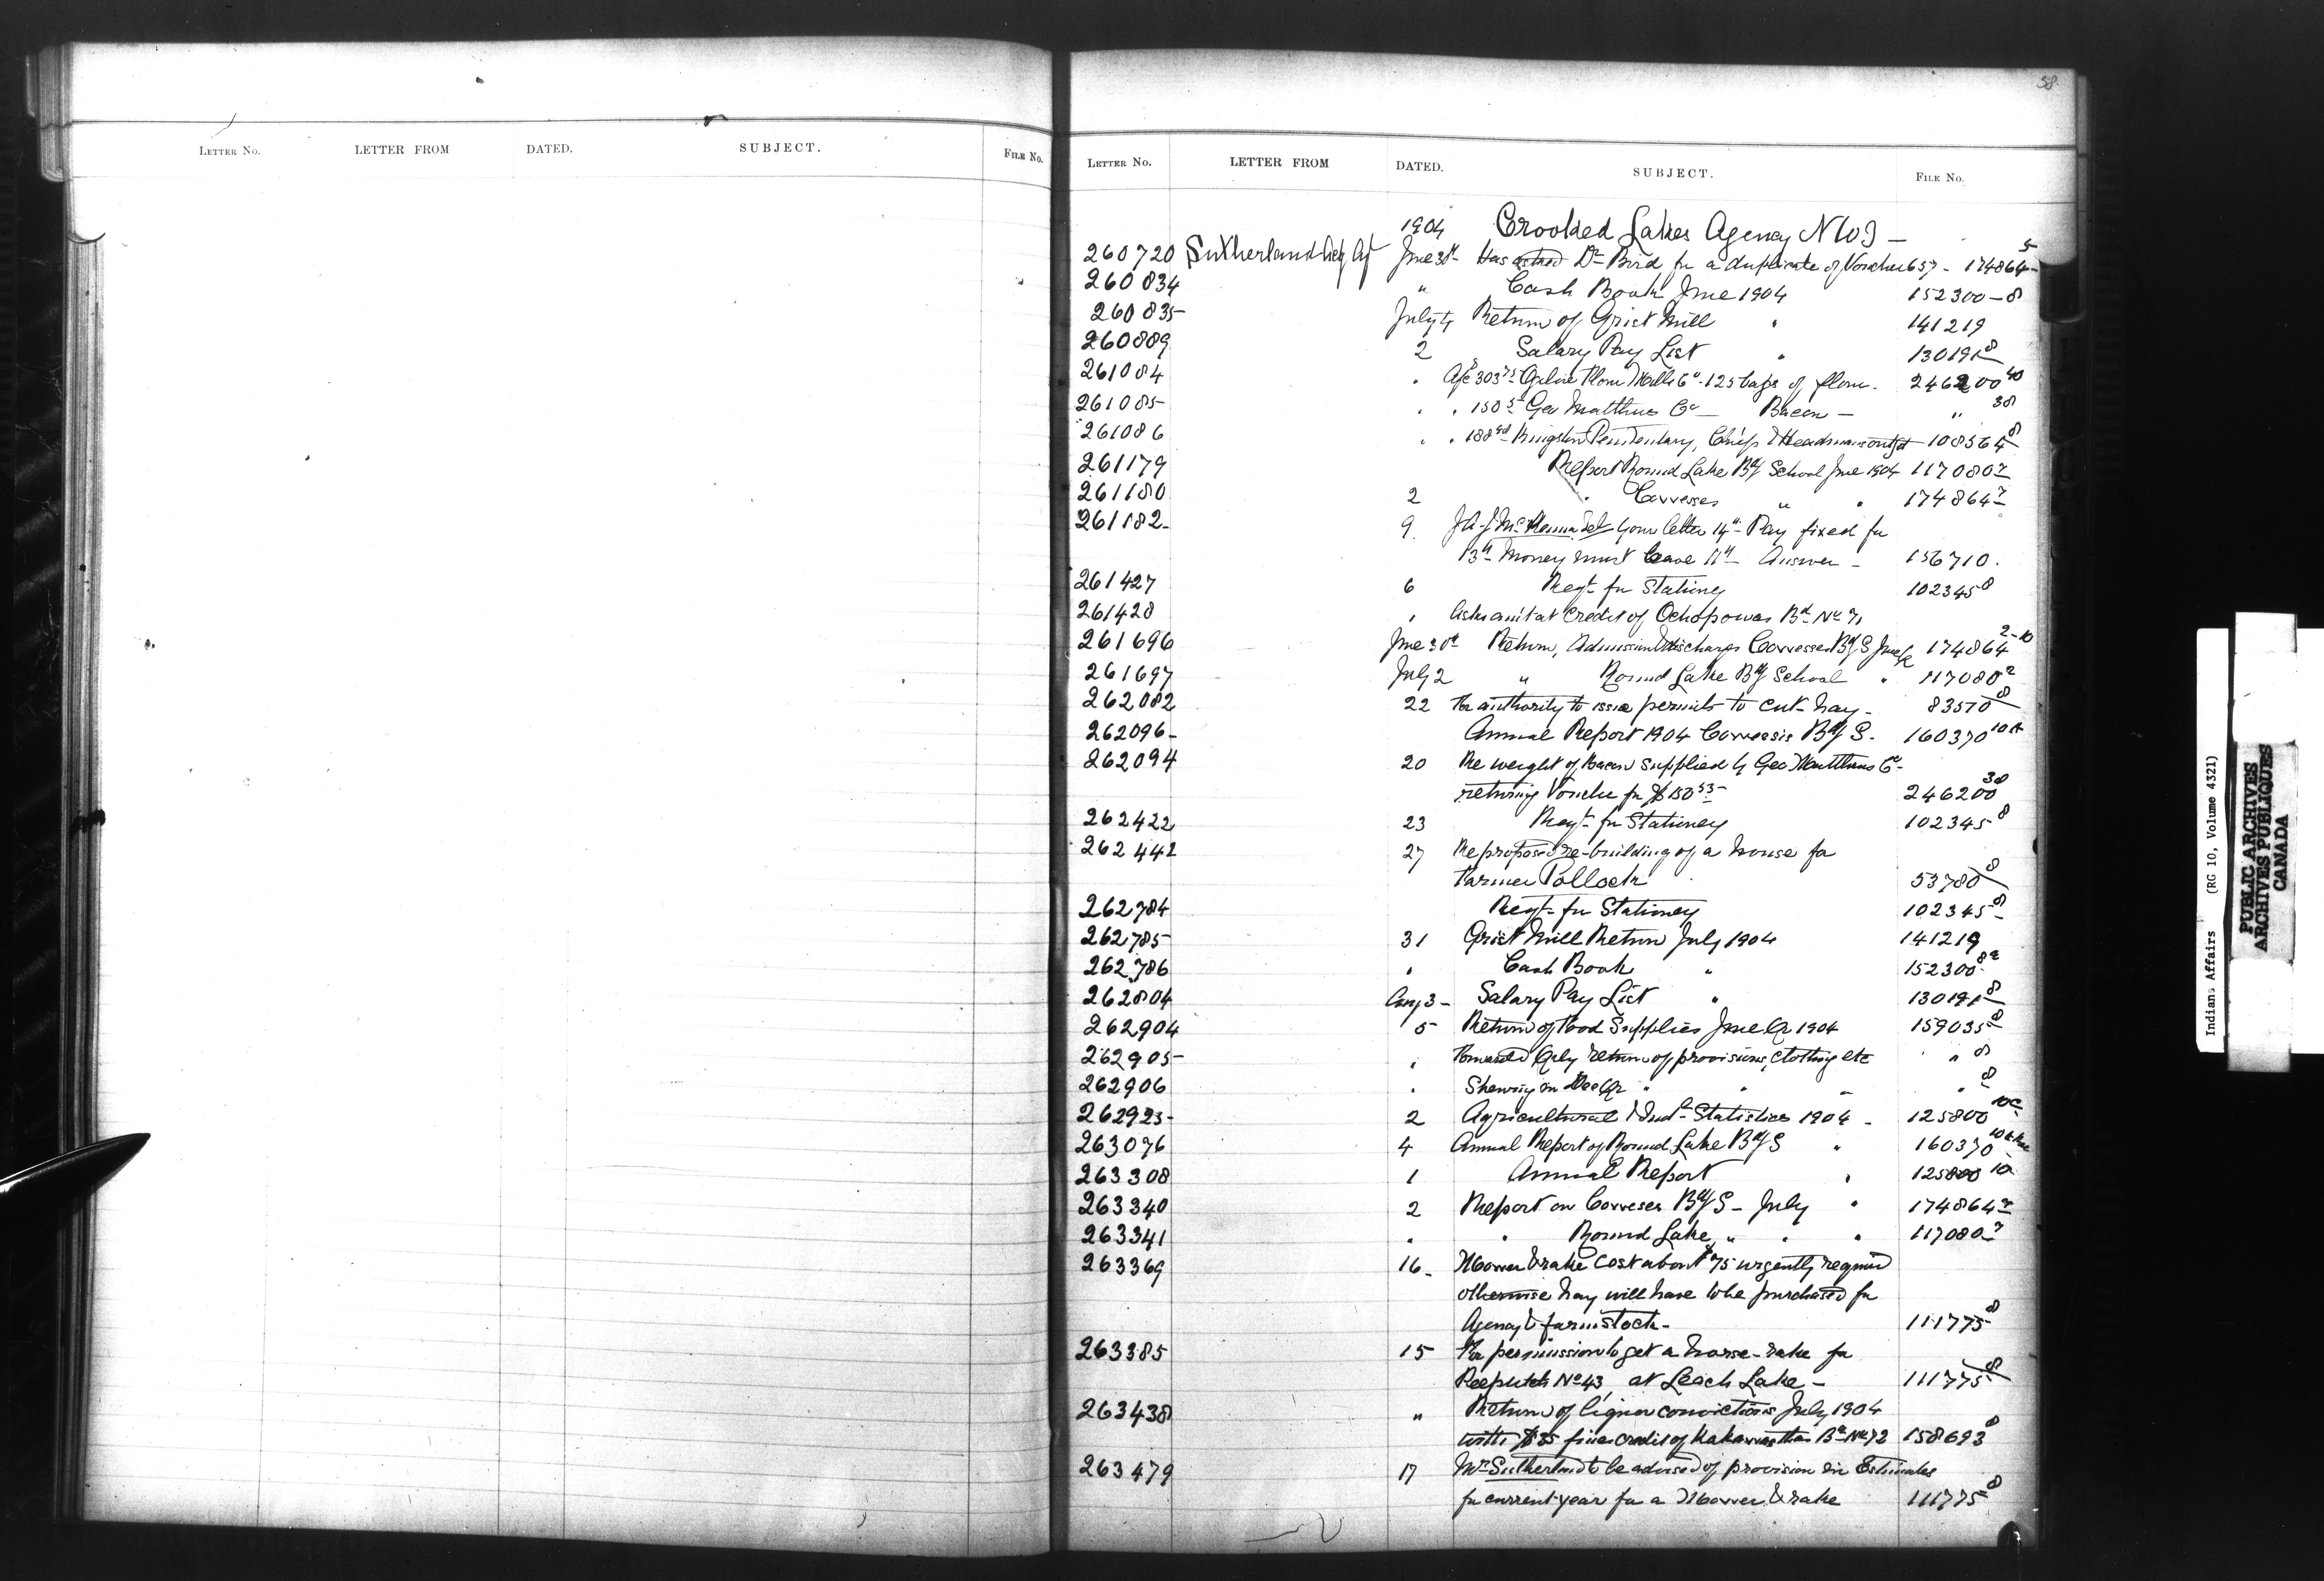 58
LETTER NO. LETTER FROM DATED. SUBJECT. FILE NO.
LETTER NO. LETTER FROM DATED. SUBJECT. FILE NO.
1904 Crooked Lakes Agency
260720 Sutherland June 30th Has asked Dr Bird for a duplicate of Voucher 657 - 174864-5
260834 " Cash Book June 1904 152300-8
260835 July 4 Return of Grist Mill " 141219
260889 2 Salary Pay List " 130191-8
261084 " Flour Mills Co - 125 bags of flour - 246200
261085 " " Geo Matthews Co - Bacon - " 38
261086 " " Kingston Penitentiary, Chiefs & Headmans outfit 108564 8
261179 Report Round Lake Bdg School June 1904 117080-2
261180 2 " Cowesses " " 174864-2
261182 9 J A J McKenna your letter 14th - Pay fixed for
13th Money must leave 11th Answer - 156710.
261427 6 Reqt for Stationery 102345 8
261428 " Asks amt at Credit of Ochopowas Bd No 71
261696 June 30th Return, Admission & discharges Cowesses Bdg S June 174864 2-10
261697 July 2 " Round Lake Bdg School " 117080 2
262082 22 For authority to issue permits to cut hay - 83570 8
262096 Annual Report 1904 Cowesis Bdg S. 160370
262094 20 Re weight of Bacon supplied by Geo Matthews Co -
returning Voucher for $150 53 - 246200 38
262422 23 Reqt for Stationery 102345 8
262442 27 Re proposed re-building of a house for
Farmer Pollock 53780 8
262784 Reqt for Stationery 102345 8
262785 31 Grist Mill Return July 1904 141219
262786 " Cash Book " 152300
262804 Aug 3 - Salary Pay List " 130191-8
262904 5 Return of Food Supplies June Qr 1904 159035 8
262905 " Forwards Qrly return of provisions, clothing etc " 8
262906 " " " " 8
262923 2 Agricultural & Indl Statistics 1904 - 125800
263076 4 Annual Report of Round Lake Bdg S " 160370
263308 1 Annual Report " 125800 10
263340 2 Report on Coweses Bdg S - July " 174864-2
263341 " " Round Lake " " " 117080-2
263369 16 - Mower & rake cost about $75 urgently required
otherwise hay will have to be purchased for
Agency & farm stock - 111775 8
263385 15 For permission to get a horse-rake for
No 43 at Leech Lake - 111775 8
263438 " Return of liquor convictions July 1904
with $35 fines credit of Kakewistahaw Bd No 72 158693 8
263479 17 Mr Sutherland to be advised of provision in Estimates
for current year for a Mower & rake 111775 8
Indians Affairs (RG 10, Volume 4321)
PUBLIC ARCHIVES
ARCHIVES PUBLIQUES
CANADA